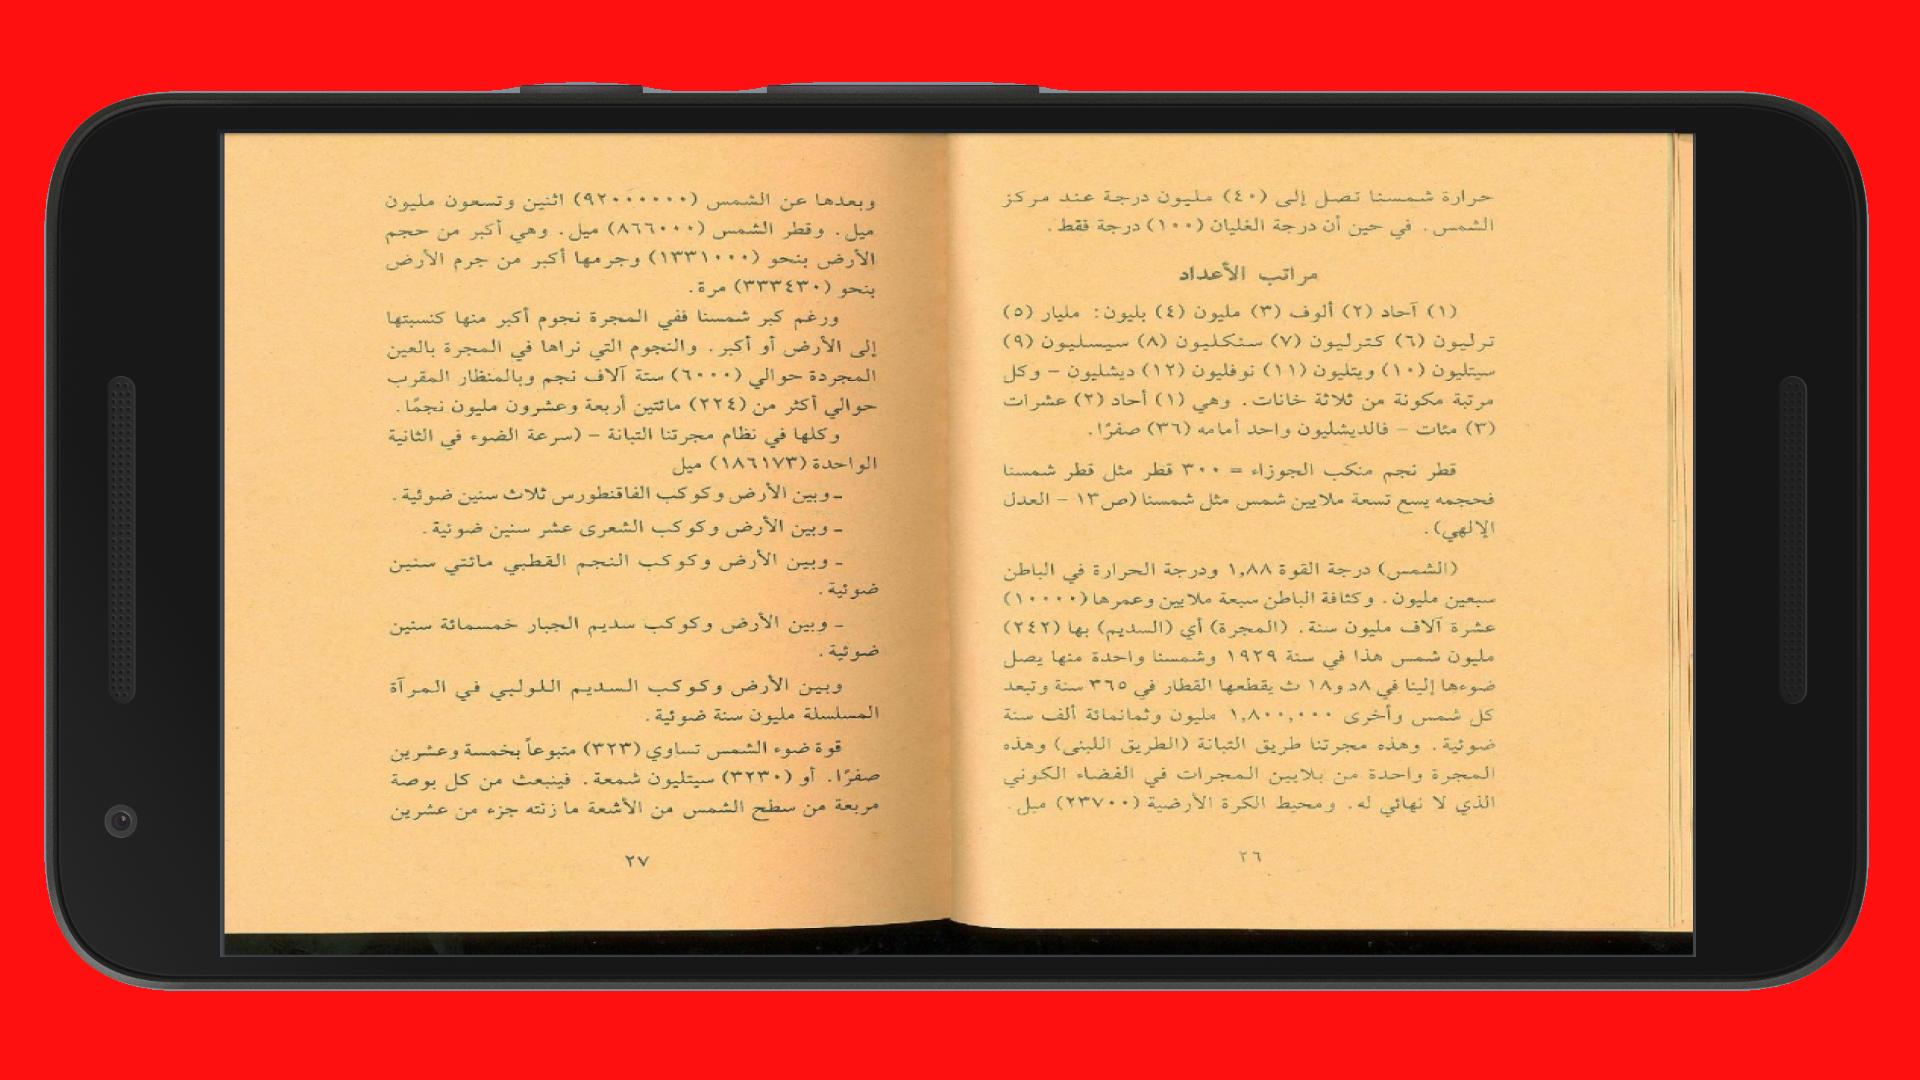 حرارة شمسنا تصل إلى (٤٠) مليون درجة عند مركز
الشمس. في حين أن درجة الغليان (١٠٠) درجة فقط.
مراتب الأعداد
(١) آحاد (٢) ألوف (٣) مليون (٤) بليون: مليار (٥)
ترليون (٦) كترليون (٧) سنكليون (٨) سيسليون (٩)
سيتليون (١٠) ويتليون (١١) نوفليون (١٢) ديشليون – وكل
مرتبة مكونة من ثلاثة خانات. وهي (١) أحاد (٢) عشرات
(٣) مئات – فالديشليون واحد أمامه (٣٦) صفرًا.
قطر نجم منكب الجوزاء = ٣٠٠ قطر مثل قطر شمسنا
فحجمه يسع تسعة ملايين شمس مثل شمسنا (ص١٣ – العدل
الإلهي).
(الشمس) درجة القوة ١,٨٨ ودرجة الحرارة في الباطن
سبعين مليون. وكثافة الباطن سبعة ملايين وعمرها (١٠٠٠٠)
عشرة آلاف مليون سنة. (المجرة) أي (السديم) بها (٢٤٢)
مليون شمس هذا في سنة ١٩٢٩ وشمسنا واحدة منها يصل
ضوءها إلينا في ٨د و١٨ ث يقطعها القطار في ٣٦٥ سنة وتبعد
كل شمس وأخرى ١,٨٠٠,٠٠٠ مليون وثمانمائة ألف سنة
ضوئية. وهذه مجرتنا طريق التبانة (الطريق اللبنى) وهذه
المجرة واحدة من بلايين المجرات في الفضاء الكوني
الذي لا نهائي له. ومحيط الكرة الأرضية (٢٣٧٠٠) ميل.
٢٦
وبعدها عن الشمس (٩٢٠٠٠٠٠٠) اثنين وتسعون مليون
ميل. وقطر الشمس (٨٦٦٠٠٠) ميل. وهي أكبر من حجم
الأرض بنحو (١٣٣١٠٠٠) وجرمها أكبر من جرم الأرض
بنحو (٣٣٣٤٣٠) مرة.
ورغم كبر شمسنا ففي المجرة نجوم أكبر منها كنسبتها
إلى الأرض أو أكبر. والنجوم التي نراها في المجرة بالعين
المجردة حوالي (٦٠٠٠) ستة آلاف نجم وبالمنظار المقرب
حوالي أكثر من (٢٢٤) مائتين أربعة وعشرون مليون نجمًا.
وكلها في نظام مجرتنا التبانة – (سرعة الضوء في الثانية
الواحدة (١٨٦١٧٣) ميل
ـ وبين الأرض وكوكب الفاقنطورس ثلاث سنين ضوئية.
ـ وبين الأرض وكوكب الشعرى عشر سنين ضوئية.
ـ وبين الأرض وكوكب النجم القطبي مائتي سنين
ضوئية.
ـ وبين الأرض وكوكب سديم الجبار خمسمائة سنين
ضوئية.
وبين الأرض وكوكب السديم اللولبي في المرآة
المسلسلة مليون سنة ضوئية.
قوة ضوء الشمس تساوي (٣٢٣) متبوعاً بخمسة وعشرين
صفرًا. أو (٣٢٣٠) سيتليون شمعة. فينبعث من كل بوصة
مربعة من سطح الشمس من الأشعة ما زنته جزء من عشرين
٢٧